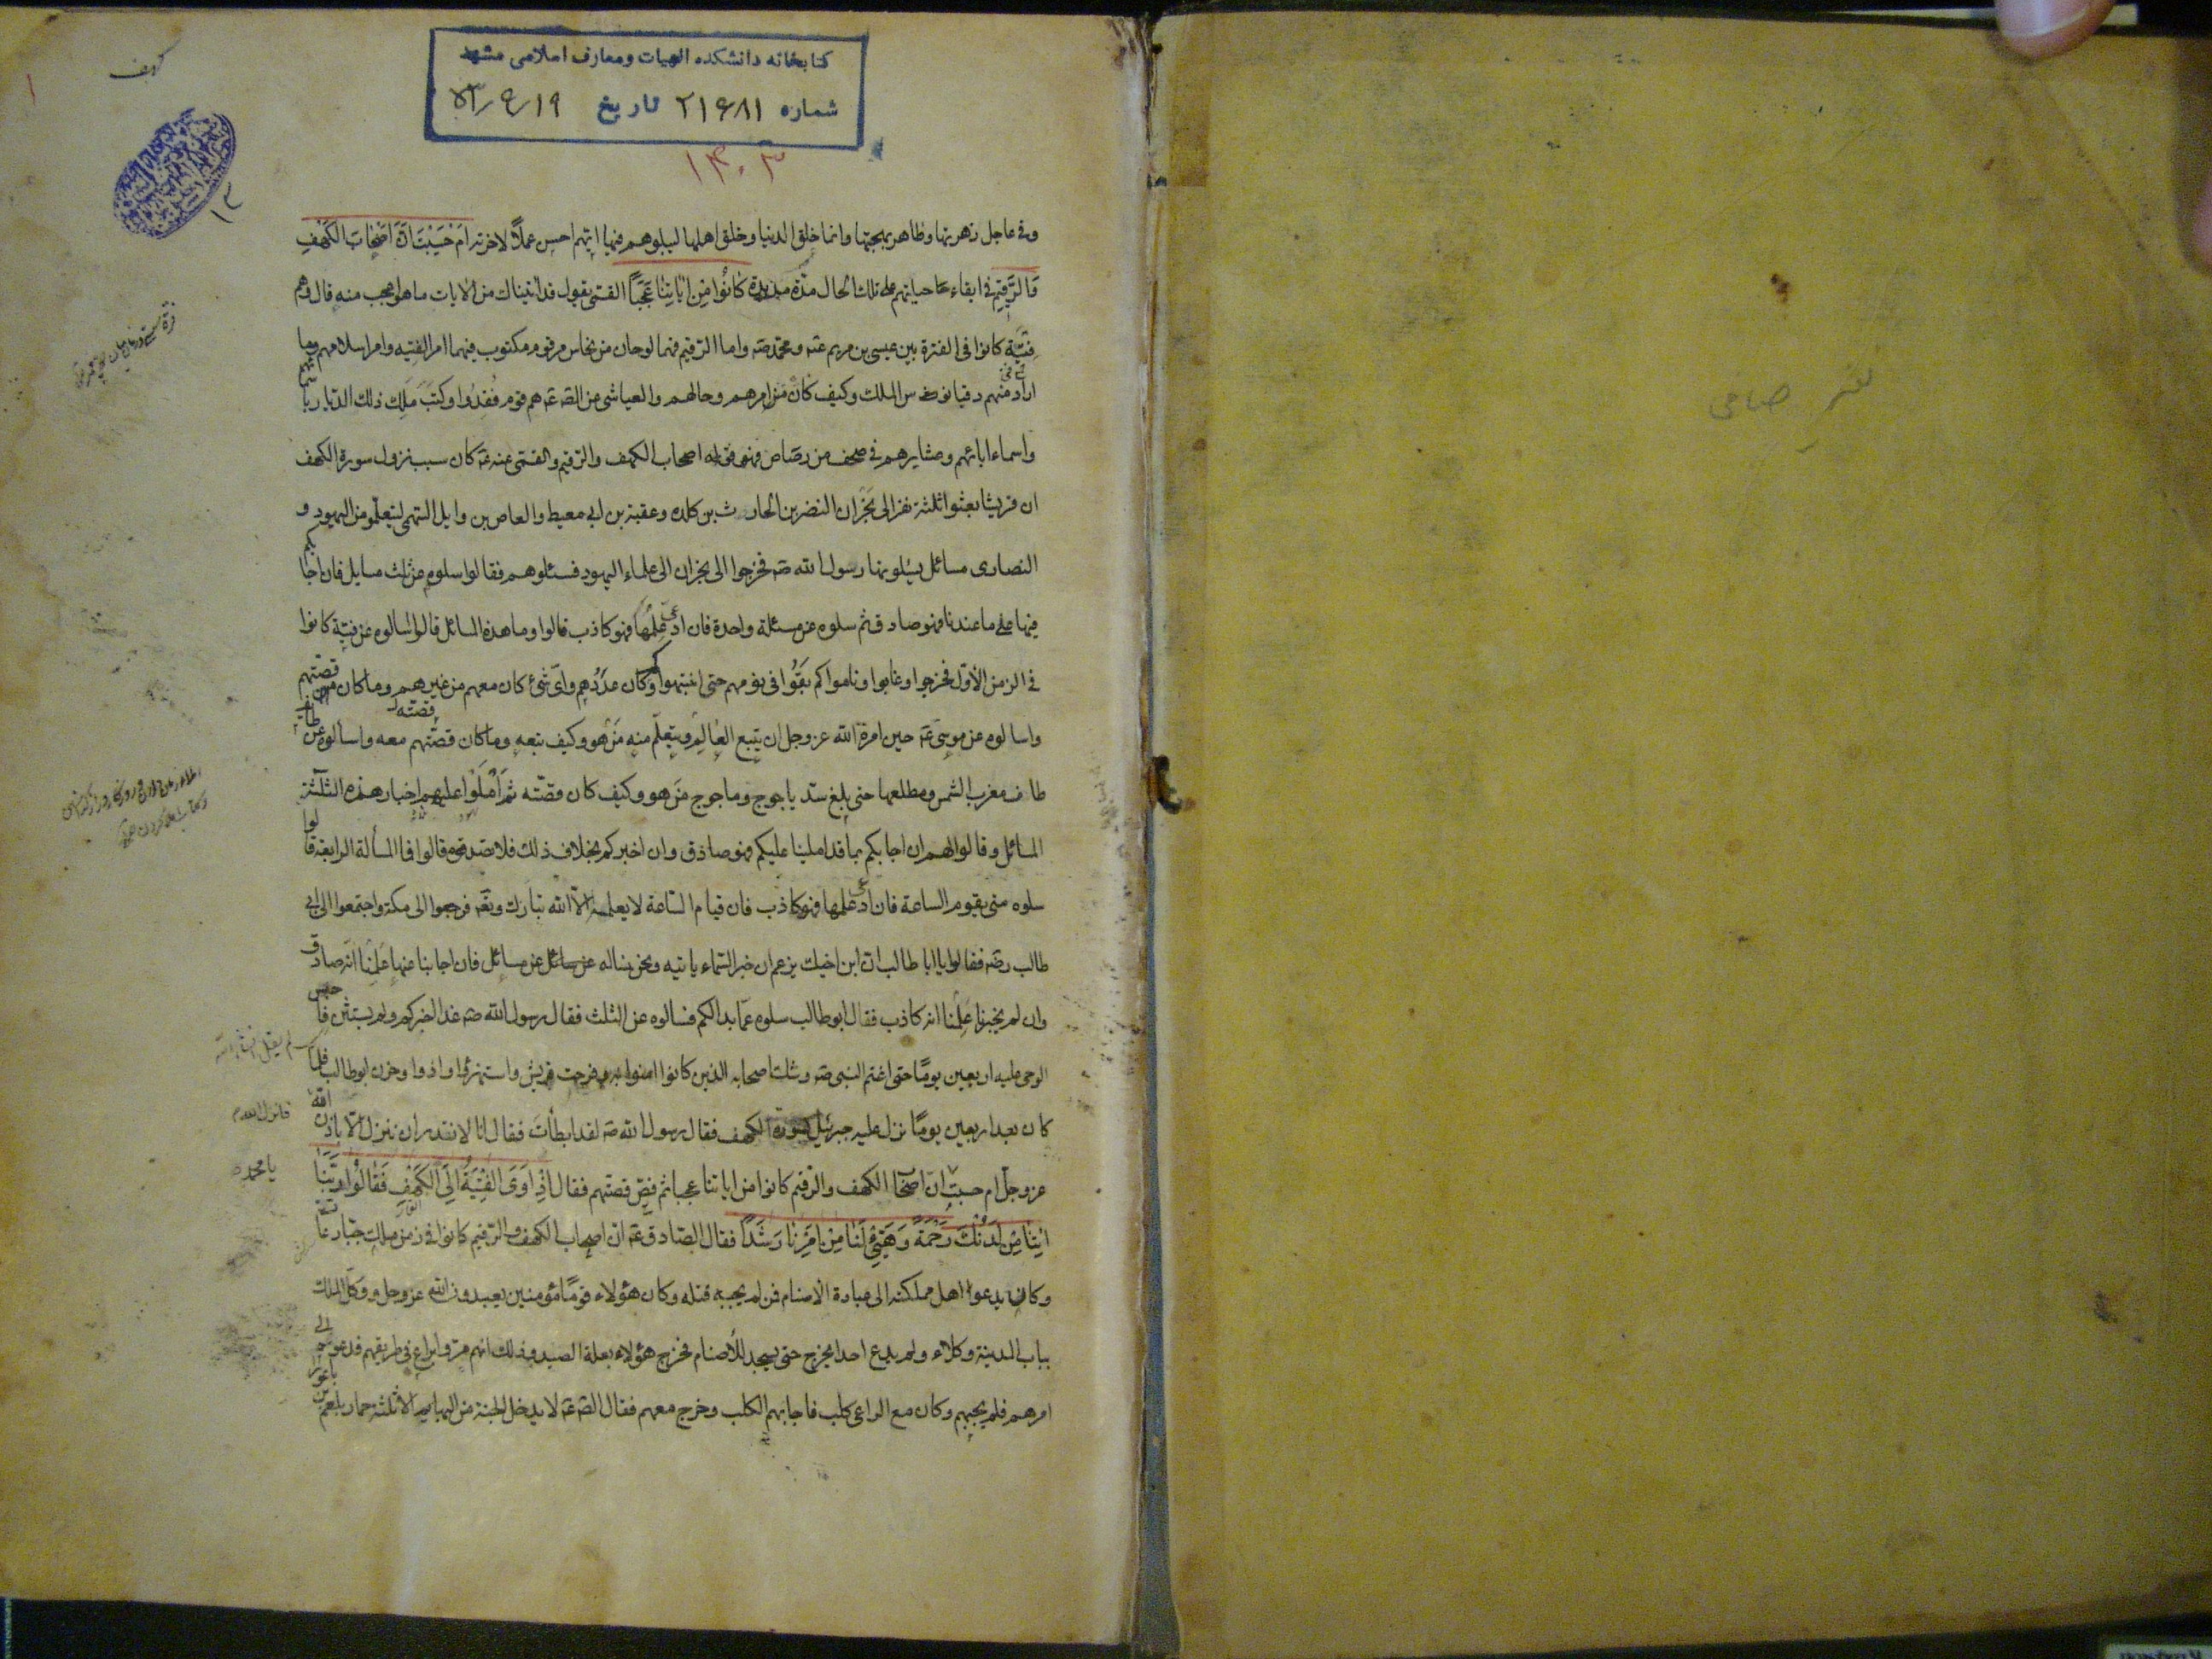 تفسیر صافی
کهف
کتابخانه دانشکده الهیات ومعارف اسلامی مشهد
شماره ۲۱۶۸۱ تاریخ ۵۳/۹/۱۹
۱۳۰۳
۱۲
وفی عاجل زهرتها وظاهر بهجتها وانما خلق الدنیا وخلق اهلها لیبلوهم فیها ایهم احسن عملاً لاخرته اَم حَسِبْتَ اَنَّ اَصْحابَ الکَهْفِ
وَالرَّقیمِ فی ابقاء حیاتهم علی تلک الحال مدّة مدیدة کانُوا مِنْ ایاتِنا عَجَبًا القمی یقول قد اتیناک من الایات ما هو اعجب منه قال وهم
فِتیَة کانوا فی الفترة بین عیسی بن مریم عَه ومحمد صَه واما الرقیم فهما لوحان من نحاس مرقوم مکتوب فیهما امر الفتیه وامر اسلامهم وما
اراد منهم دقیانوس الملک وکیف کان من امرهم وحالهم والعیاشی عن الصّ عَه هم قوم فُقِدُوا وکتَبَ مَلِک ذلک الدیار باسمائهم
واسماء ابائهم وعشایرهم فی صحف من رصاص فهو قوله اصحاب الکهف والرقیم والقمی عنه عَه کان سبب نزول سورة الکهف
ان قریشا بعثوا ثلثة نفر الی نَجْران النضر بن الحارث بن کلده وعقبة بن ابی معیط والعاص بن وایل السهمی لیتعلّمو من الیهود و
النصاری مسائل یسئلونها رسول الله صَه فخرجوا الی نجران الی علماء الیهود فسئلوهم فقالوا سلوه عن ثلث مسایل فان اجابکم
فیها علی ما عندنا فهو صادق ثم سلوه عن مسئلة واحدة فان ادّعی عِلمُها فهو کاذب قالوا وما هذه المسائل قالوا اسالوه عن فتیة کانوا
فی الزمن الاوّل فخرجوا وغابوا وناموا کم بَقُوا فی نومهم حتی انتبهوا وکم کان عدَدُهم وای شیء کان معهم من غیرهم وما کان قصّتهم
واسالوه عن موسی عَه حین امره الله عز وجل ان یتبع العالِم ویتعلّم منه مَن هو وکیف تبعه وما کان قصّته معه واسالوه عن طائف
طاف مغرب الشمس ومطلعها حتی بلغ سدّ یاجوج وماجوج مَن هو وکیف کان قصّته ثم اَمْلَوْا علیهم اخبار هذه الثلثة
المسائل وقالوا لهم ان اجابکم بما قد املینا علیکم فهو صادق وان اخبرکم بخلاف ذلک فلا تصدقوه قالوا فما المسألة الرابعة قالوا
سلوه متی یقوم الساعة فان ادّعی علمها فهو کاذب فان قیام الساعة لا یعلمه الاّ الله تبارک وتعَه فرجعوا الی مکة واجتمعوا الی ابی
طالب رضَه فقالوا یا ابا طالب ان ابن اخیک یزعم ان خبر السّماء یاتیه ونحن نساله عن مسائل فان اجابنا عنها عَلِمْنا انه صادق
وان لم یخبرنا عَلِمْنا انه کاذب فقال ابو طالب سلوه عمّا بدا لکم فسالوه عن الثلث فقال رسول الله صَه غدا اخبرکم ولم یستثن فاحتبس
الوحی علیه اربعین یومًا حتی اغتم النبی صَه وشک اصحابه الذین کانوا امنوا به وفرحت قریش واستهزؤا واذوا وحزن ابو طالب فلمّا
کان بعد اربعین یومًا نزل علیه جبرئیل بسورة الکهف فقال رسول الله صَه لقد ابطأتَ فقال انا لا نقدر ان ننزل الاّ باذن الله
عز وجلّ ام حسبت انّ اصحاب الکهف والرقیم کانوا من ایاتنا عجبا ثم قصّ قصتهم فقال اِذْ اَوَی الفِتْیَةُ اِلَی الکَهْفِ فَقالُوا رَبَّنا
اتِنا مِنْ لَدُنْکَ رَحْمَةً وَهَیِّئْ لَنا مِنْ اَمْرِنا رَشَدًا فقال الصّادق عَه انّ اصحاب الکهف والرّقیم کانوا فی زمن ملک جبّار عات
وکان یدعوا اهل مملکته الی عبادة الاصنام فمن لم یجبه قتله وکان هؤلاء قومًا مؤمنین یعبدون الله عز وجل ووکّل الملک
بباب المدینة وکلاء ولم یدع احدا یخرج حتی یسجد للأصنام فخرج هؤلاء بعلة الصید وذلک انهم مرّوا براع فی طریقهم فدعوه الی
امرهم فلم یجبهم وکان مع الراعی کلب فاجابهم الکلب وخرج معهم فقال الصّ عَه لا یدخل الجنة من البهایم الا ثلثة حمار بلعم بن باعورا
لم یقل انشاء الله
یا محمد ص